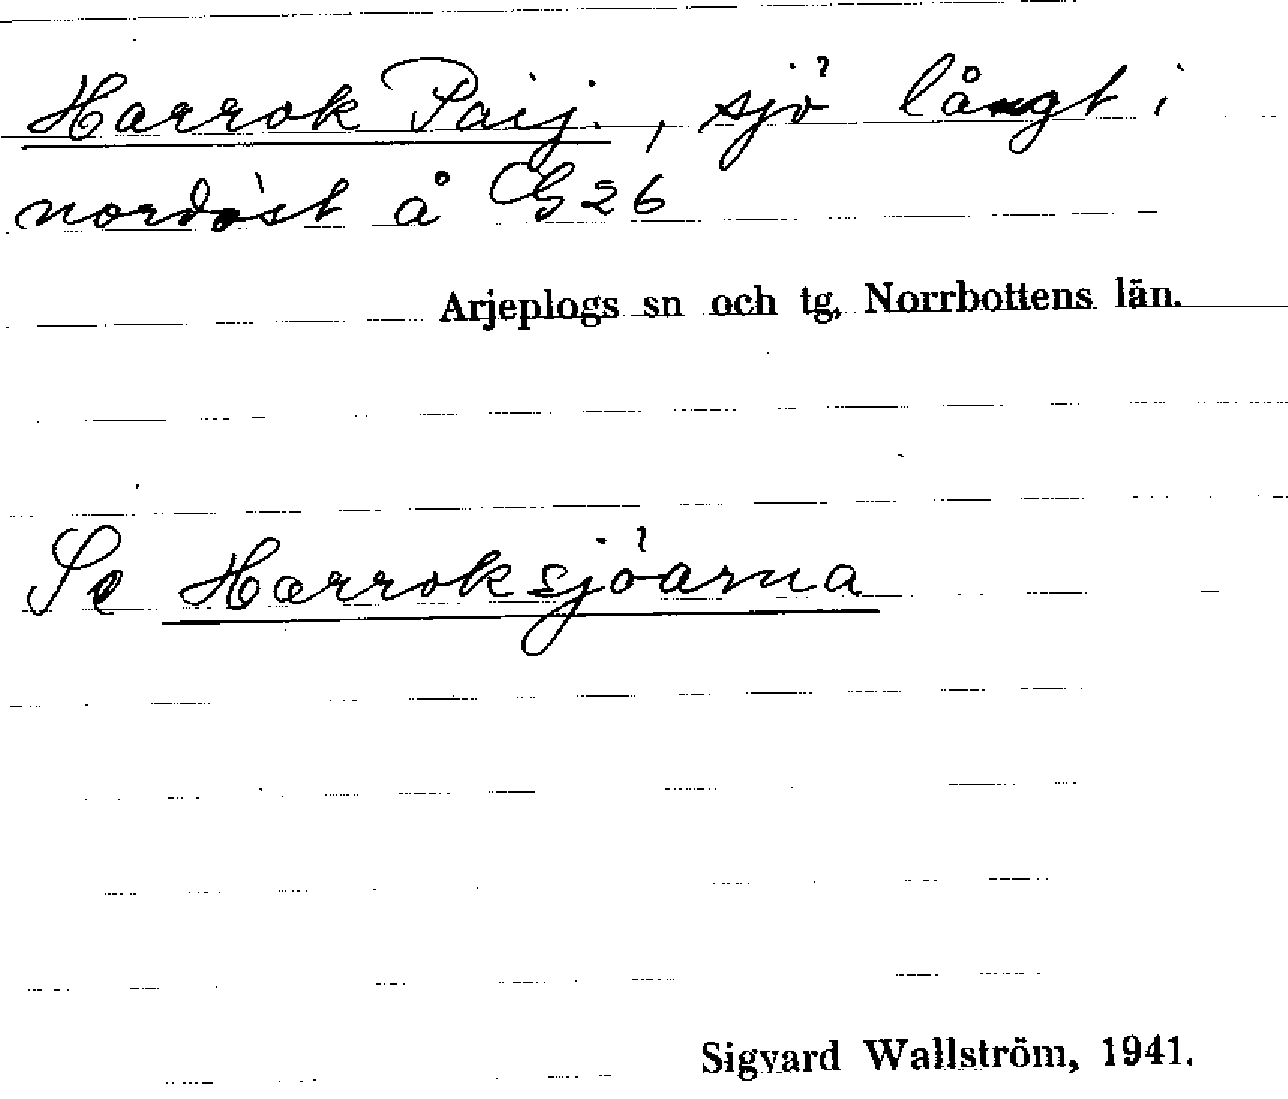 Harrok Paij. , sjö långt i
nordöst å G26
Arjeplogs sn och tg, Norrbottens län.
Se Harroksjöarna
Sigvard Wallström, 1941.